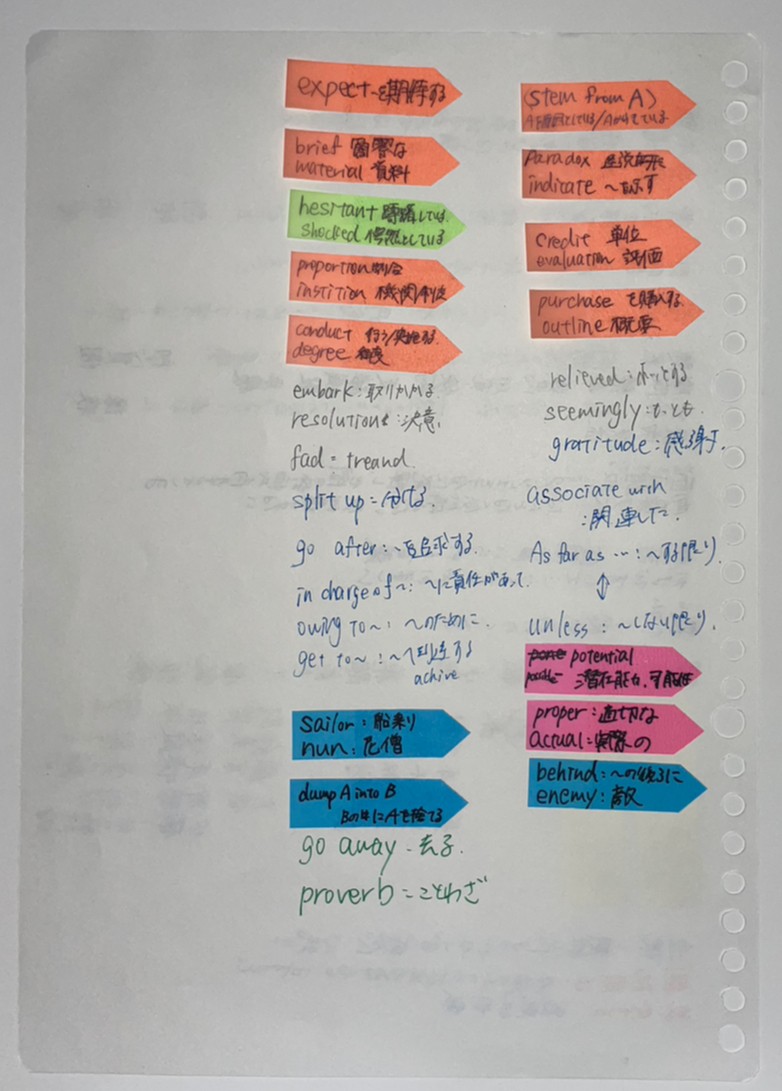 expect ~を期待する
brief 簡潔な
material 資料
hesitant 躊躇している
shocked 愕然としている
proportion 割合
instition 機関
conduct 行う/実施する
degree 程度
embark:取りかかる
resolutions:決意.
fad = treand.
split up = 分ける
go after:~を追求する.
in charge of ~:~に責任があって.
owing to~:~のために.
get to~:~へ到達する
achive
sailor:船乗り
nun:尼僧
dump A into B
Bの中にAを捨てる
go away - 去る.
proverb = ことわざ
(stem from A)
Paradox 逆説
indicate ~を示す
credit 単位
evaluation 評価
purchase を購入する
outline 概要
relieved:ホッとする
seemingly:
gratitude:感謝.
associate with
:関連した.
As far as …:~する限り.
↕
unless:~しない限り.
potential
:潜在能力.可能性
proper:適切な
actual:実際の
behind:~の後ろに
enemy:敵